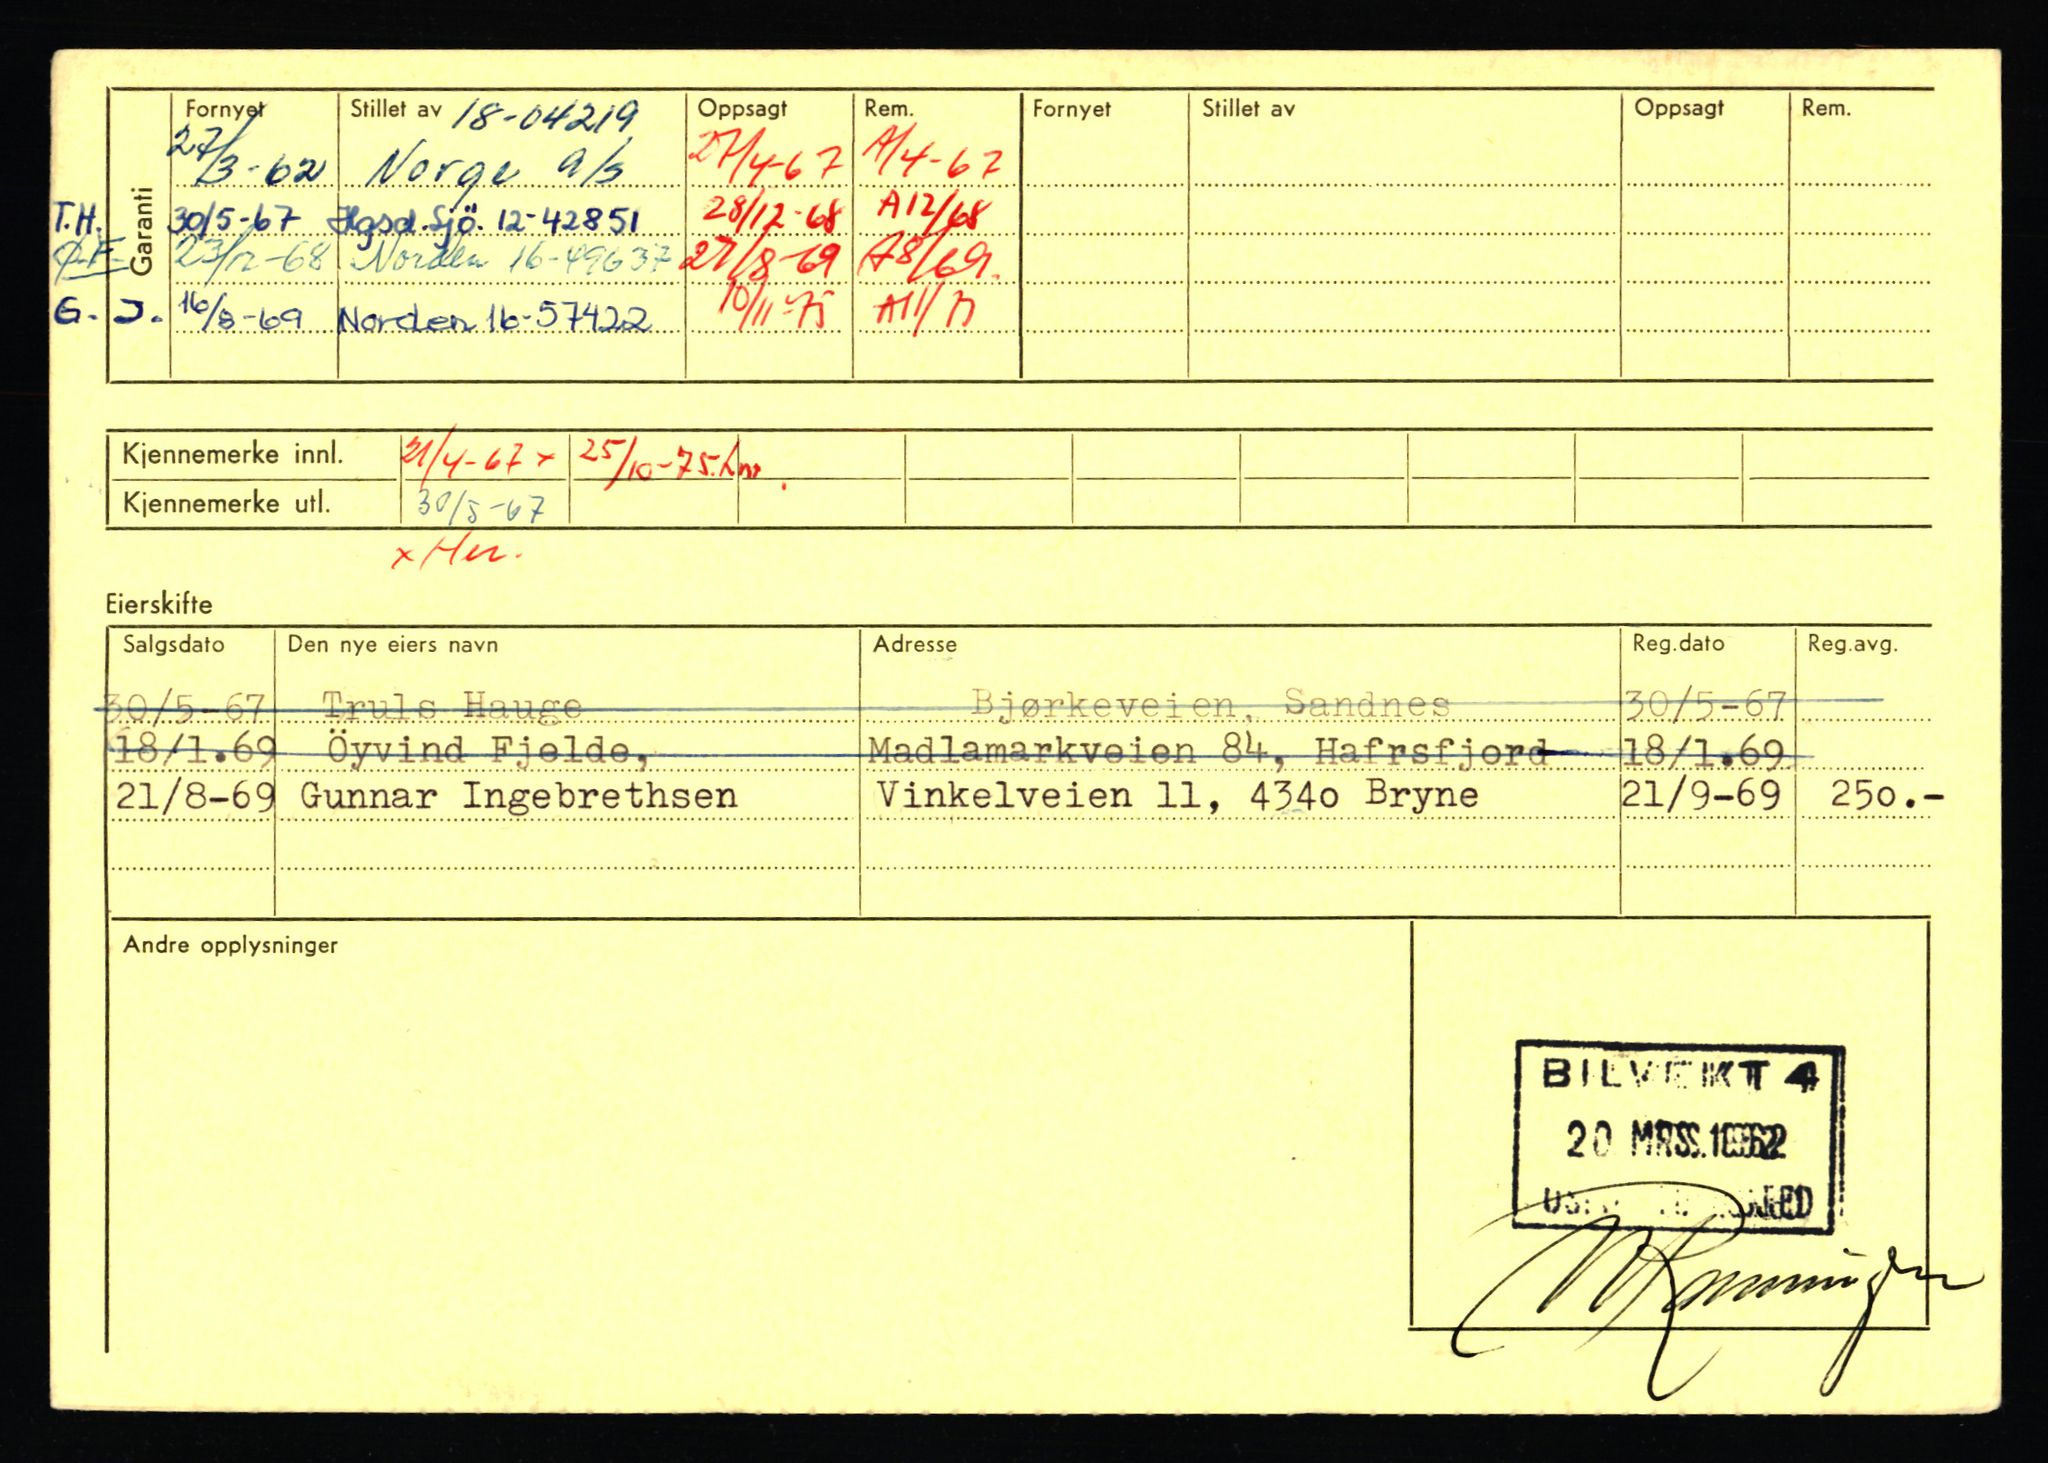 Garanti
Fornyet Stillet av 18-04219 Oppsagt Rem. Fornyet Stillet av Oppsagt Rem.
27/3-62 Norge a/s 27/4-67 A/4-67
T.H. 30/5-67 Hgsd.Sjö. 12-42851 28/12-68 A12/68
Ø.F. 23/12-68 Norden 16-49637 27/8-69 A8/69.
G. J. 16/8-69 Norden 16-57422 10/11-75 A11/75
Kjennemerke innl. 21/4-67 x 25/10-75.
Kjennemerke utl. 30/5-67
x Her.
Eierskifte
Salgsdato Den nye eiers navn Adresse Reg.dato Reg.avg.
30/5-67 Truls Hauge Bjørkeveien, Sandnes 30/5-67
18/1.69 Öyvind Fjelde, Madlamarkveien 84, Hafrsfjord 18/1.69
21/8-69 Gunnar Ingebrethsen Vinkelveien 11, 434o Bryne 21/9-69 25o.-
Andre opplysninger
20